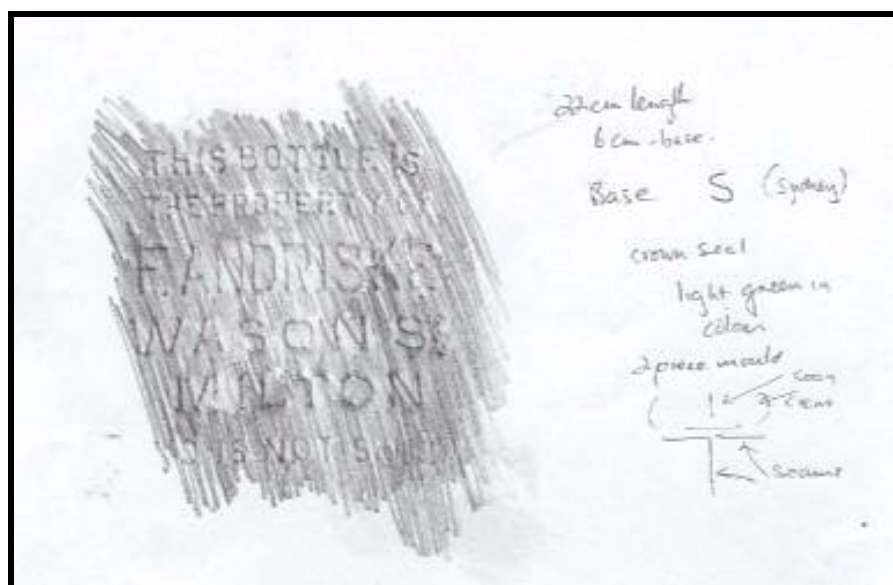 THIS BOTTLE IS
THE PROPERTY OF
F. ANDRISKE
WASON ST
MILTON
IS NOT SOLD
22cm length
6cm-base.
Base S (Sydney)
crown seal
light green in
colour
2 piece mould
seams